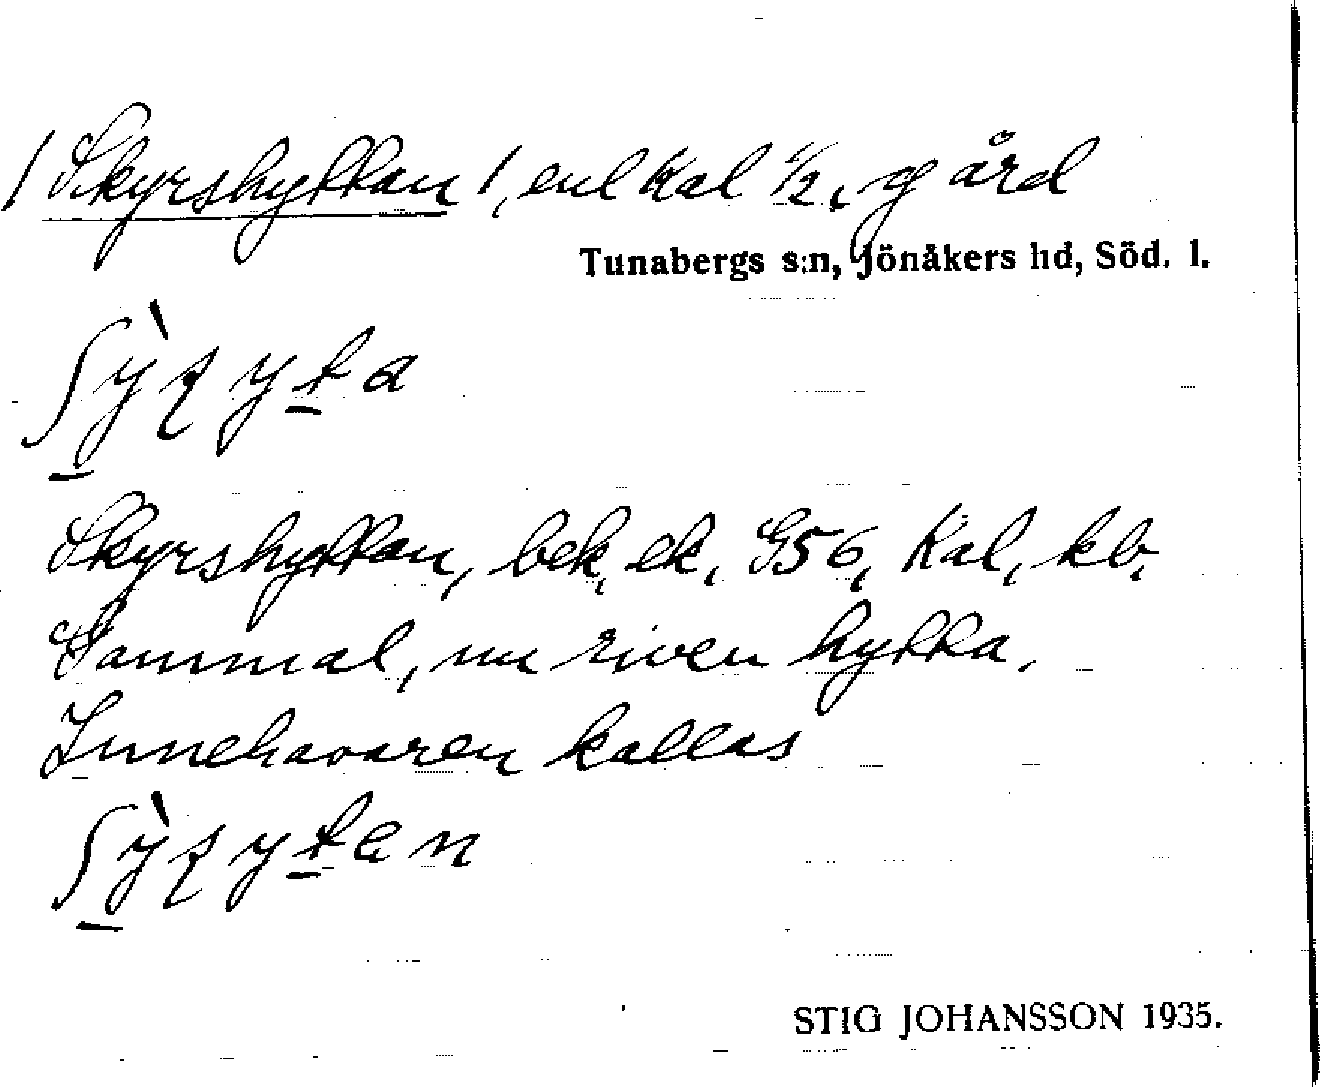 /Skyrshyttan/, enl Kal ½, gård
Tunabergs s:n, Jönåkers hd, Söd. l.
Skyrshyttan, bek, ek, G56, Kal, kb.
Gammal, nu riven hytta.
Innehavaren kallas
STIG JOHANSSON 1935.